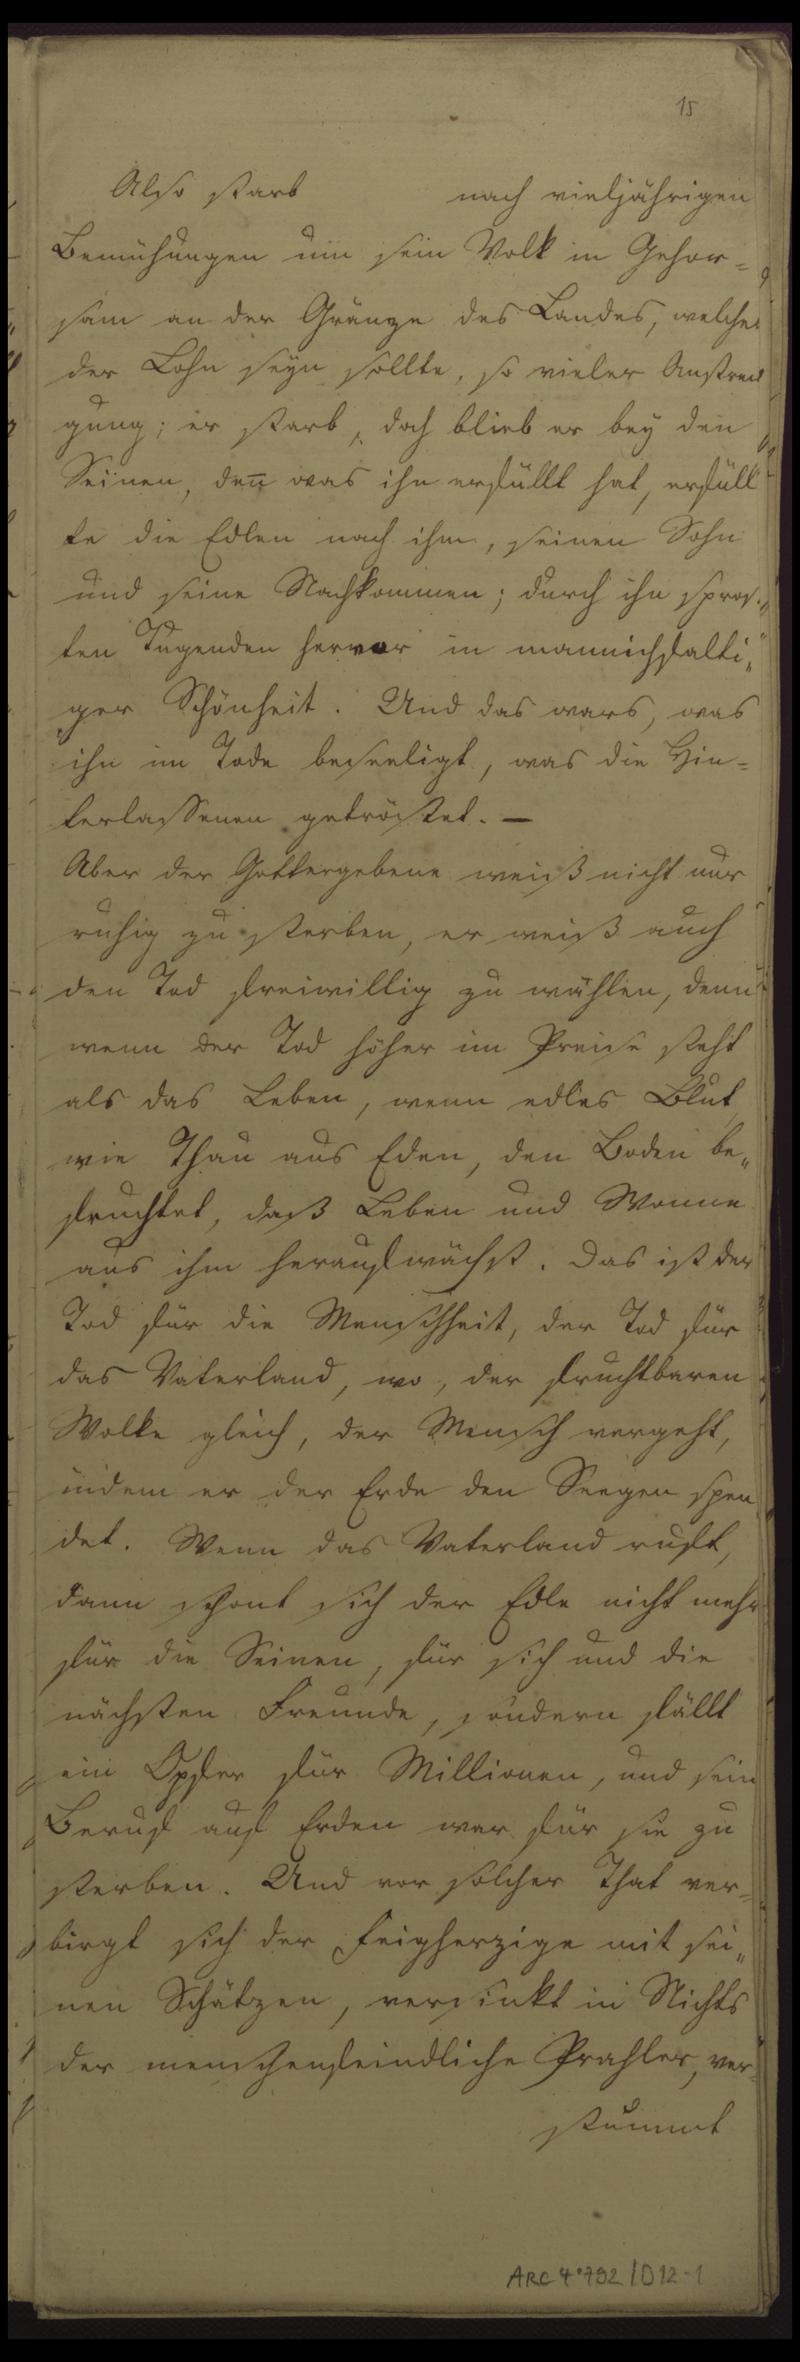 15
Also starb nach vieljährigen
Bemühungen um sein Volk in Gehor=
sam an der Gränze des Landes, welches
der Lohn seyn sollte, so vieler Anstren
gung; er starb, doch blieb er bey den
Seinen, den̅ was ihn erfüllt hat, erfüll
te die Edlen nach ihm, seinen Sohn
und seine Nachkommen; durch ihn spros„
ten Tugenden hervor in mannichfalti„
ger Schönheit. Und das wars, was
ihn im Tode beseeligt, was die Hin=
terlassenen getröstet. —
Aber der Gottergebene weiß nicht nur
ruhig zu sterben, er weiß auch
den Tod freiwillig zu wählen, denn
wenn der Tod höher im Preise steht
als das Leben, wenn edles Blut,
wie Thau aus Eden, den Boden be„
fruchtet, daß Leben und Wonne
aus ihm heraufwächst. Das ist der
Tod für die Menschheit, der Tod für
das Vaterland, wo, der fruchtbaren
Wolke gleich, der Mensch vergeht,
indem er der Erde den Seegen spen
det. Wenn das Vaterland ruft,
dann schont sich der Edle nicht mehr
für die Seinen, für sich und die
nächsten Freunde, sondern fällt
ein Opfer für Millionen, und sein
Beruf auf Erden war für sie zu
sterben. Und vor solcher That ver=
birgt sich der Feigherzige mit sei„
nen Schätzen, versinkt in Nichts
der menschenfeindliche Prahler, ver=
stummt
ARC 4°792/D12-1